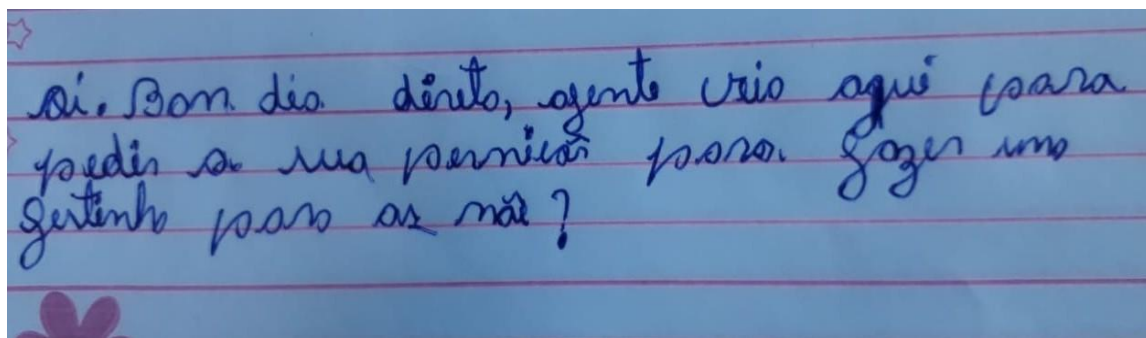 oi. Bom dia direto, agente veio aqui para
pedir a sua permicão para fazer uma
festinha para as mãe?